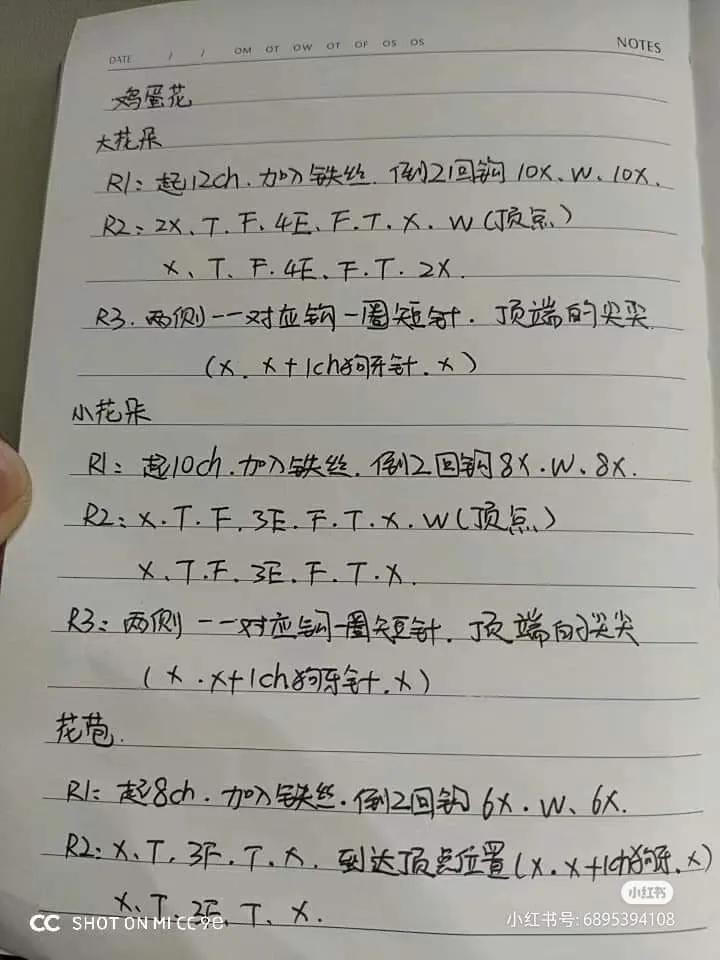 DATE / / OM OT OW OT OF OS OS NOTES
鸡蛋花
大花朵
R1: 起12ch. 加入铁丝. 倒2回钩 10X. W. 10X.
R2: 2X. T. F. 4E. F. T. X. W (顶点)
X. T. F. 4E. F. T. 2X.
R3. 两侧一一对应钩一圈短针. 顶端的尖尖
(X. X+1ch狗牙针. X)
小花朵
R1: 起10ch. 加入铁丝. 倒2回钩 8X. W. 8X.
R2: X. T. F. 3E. F. T. X. W (顶点)
X. T. F. 3E. F. T. X.
R3: 两侧一一对应钩一圈短针. 顶端的尖尖
(X. X+1ch狗牙针. X)
花苞.
R1: 起8ch. 加入铁丝. 倒2回钩 6X. W. 6X.
R2: X. T. 3F. T. X. 到达顶点位置 (X. X+1ch狗牙. X)
X. T. 3F. T. X.
小红书
SHOT ON MI CC 9e
小红书号: 6895394108